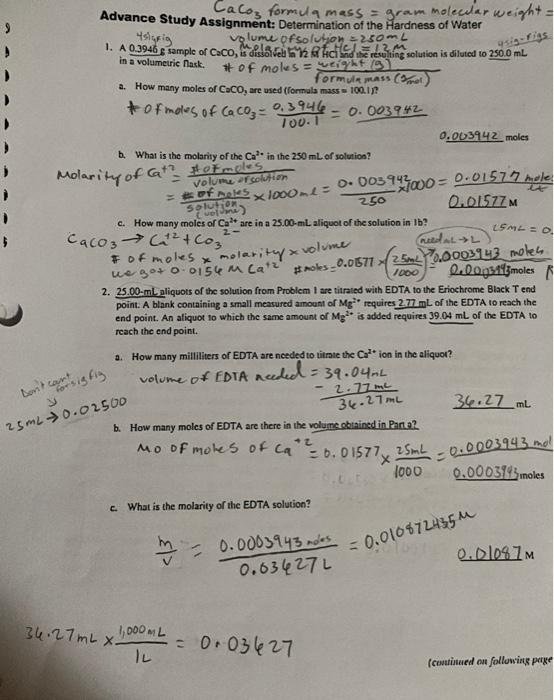 CaCO3 formula mass = gram molecular weight =
Advance Study Assignment: Determination of the Hardness of Water
4sigfig volume of solution = 250mL 4sig-figs
Molarity of HCl = 12M
1. A 0.3946 g sample of CaCO3 is dissolved in 12 M HCl and the resulting solution is diluted to 250.0 mL
in a volumetric flask. # of moles = weight (g) / formula mass (g/mol)
a. How many moles of CaCO3 are used (formula mass = 100.1)?
# of moles of CaCO3 = 0.3946 / 100.1 = 0.003942
0.003942 moles
b. What is the molarity of the Ca2+ in the 250 mL of solution?
Molarity of Ca+2 = # of moles / volume of solution
= # of moles / solution (volume) × 1000mL = 0.003942 / 250 × 1000 = 0.01577 mole
0.01577 M
c. How many moles of Ca2+ are in a 25.00-mL aliquot of the solution in 1b?
25mL = 0.
CaCO3 → Ca+2 + CO3 2-
(need mL → L)
# of moles × molarity × volume
we got 0.0156 M Ca+2 # moles = 0.01577 × (25mL / 1000) = 0.0003943 moles
0.0003943 moles
2. 25.00-mL aliquots of the solution from Problem 1 are titrated with EDTA to the Eriochrome Black T end
point. A blank containing a small measured amount of Mg2+ requires 2.77 mL of the EDTA to reach the
end point. An aliquot to which the same amount of Mg2+ is added requires 39.04 mL of the EDTA to
reach the end point.
a. How many milliliters of EDTA are needed to titrate the Ca2+ ion in the aliquot?
Don't count for sig fig
volume of EDTA needed = 39.04mL
- 2.77mL
36.27mL
36.27 mL
25mL → 0.02500
b. How many moles of EDTA are there in the volume obtained in Part a?
Mo of moles of Ca+2 = 0.01577 × 25mL / 1000 = 0.0003943 mol
0.0003943 moles
c. What is the molarity of the EDTA solution?
m / v = 0.0003943 moles / 0.03627 L = 0.010872435M
0.01087 M
36.27mL × 1,000mL / 1L = 0.03627
(continued on following page